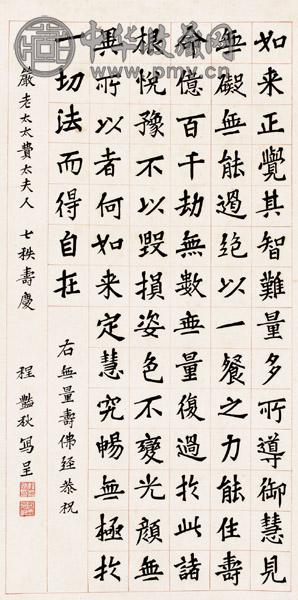 中华收藏网
如来正覺其智難量多所導御慧見
無礙無能遏絕以一餐之力能住壽
命億百千劫無數無量復過於此諸
根悅豫不以毀損姿色不變光顏無
異所以者何如来定慧究暢無極於
一切法而得自在
右無量壽佛經恭祝
嚴老太太費太夫人 七秩壽慶 程豔秋寫呈